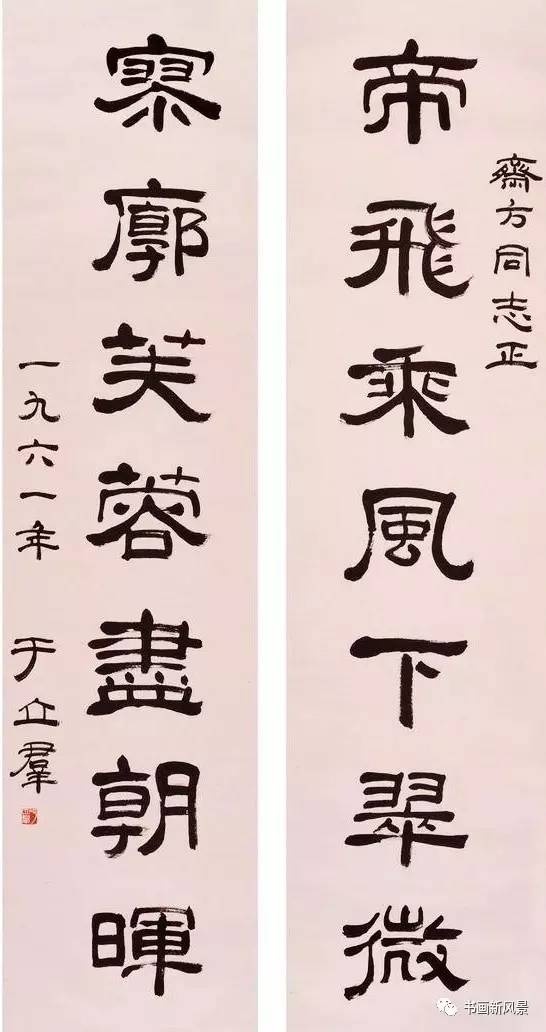 齋方同志正
帝飛乘風下翠微
寥廓芙蓉盡朝暉
一九六一年 于立羣
书画新风景